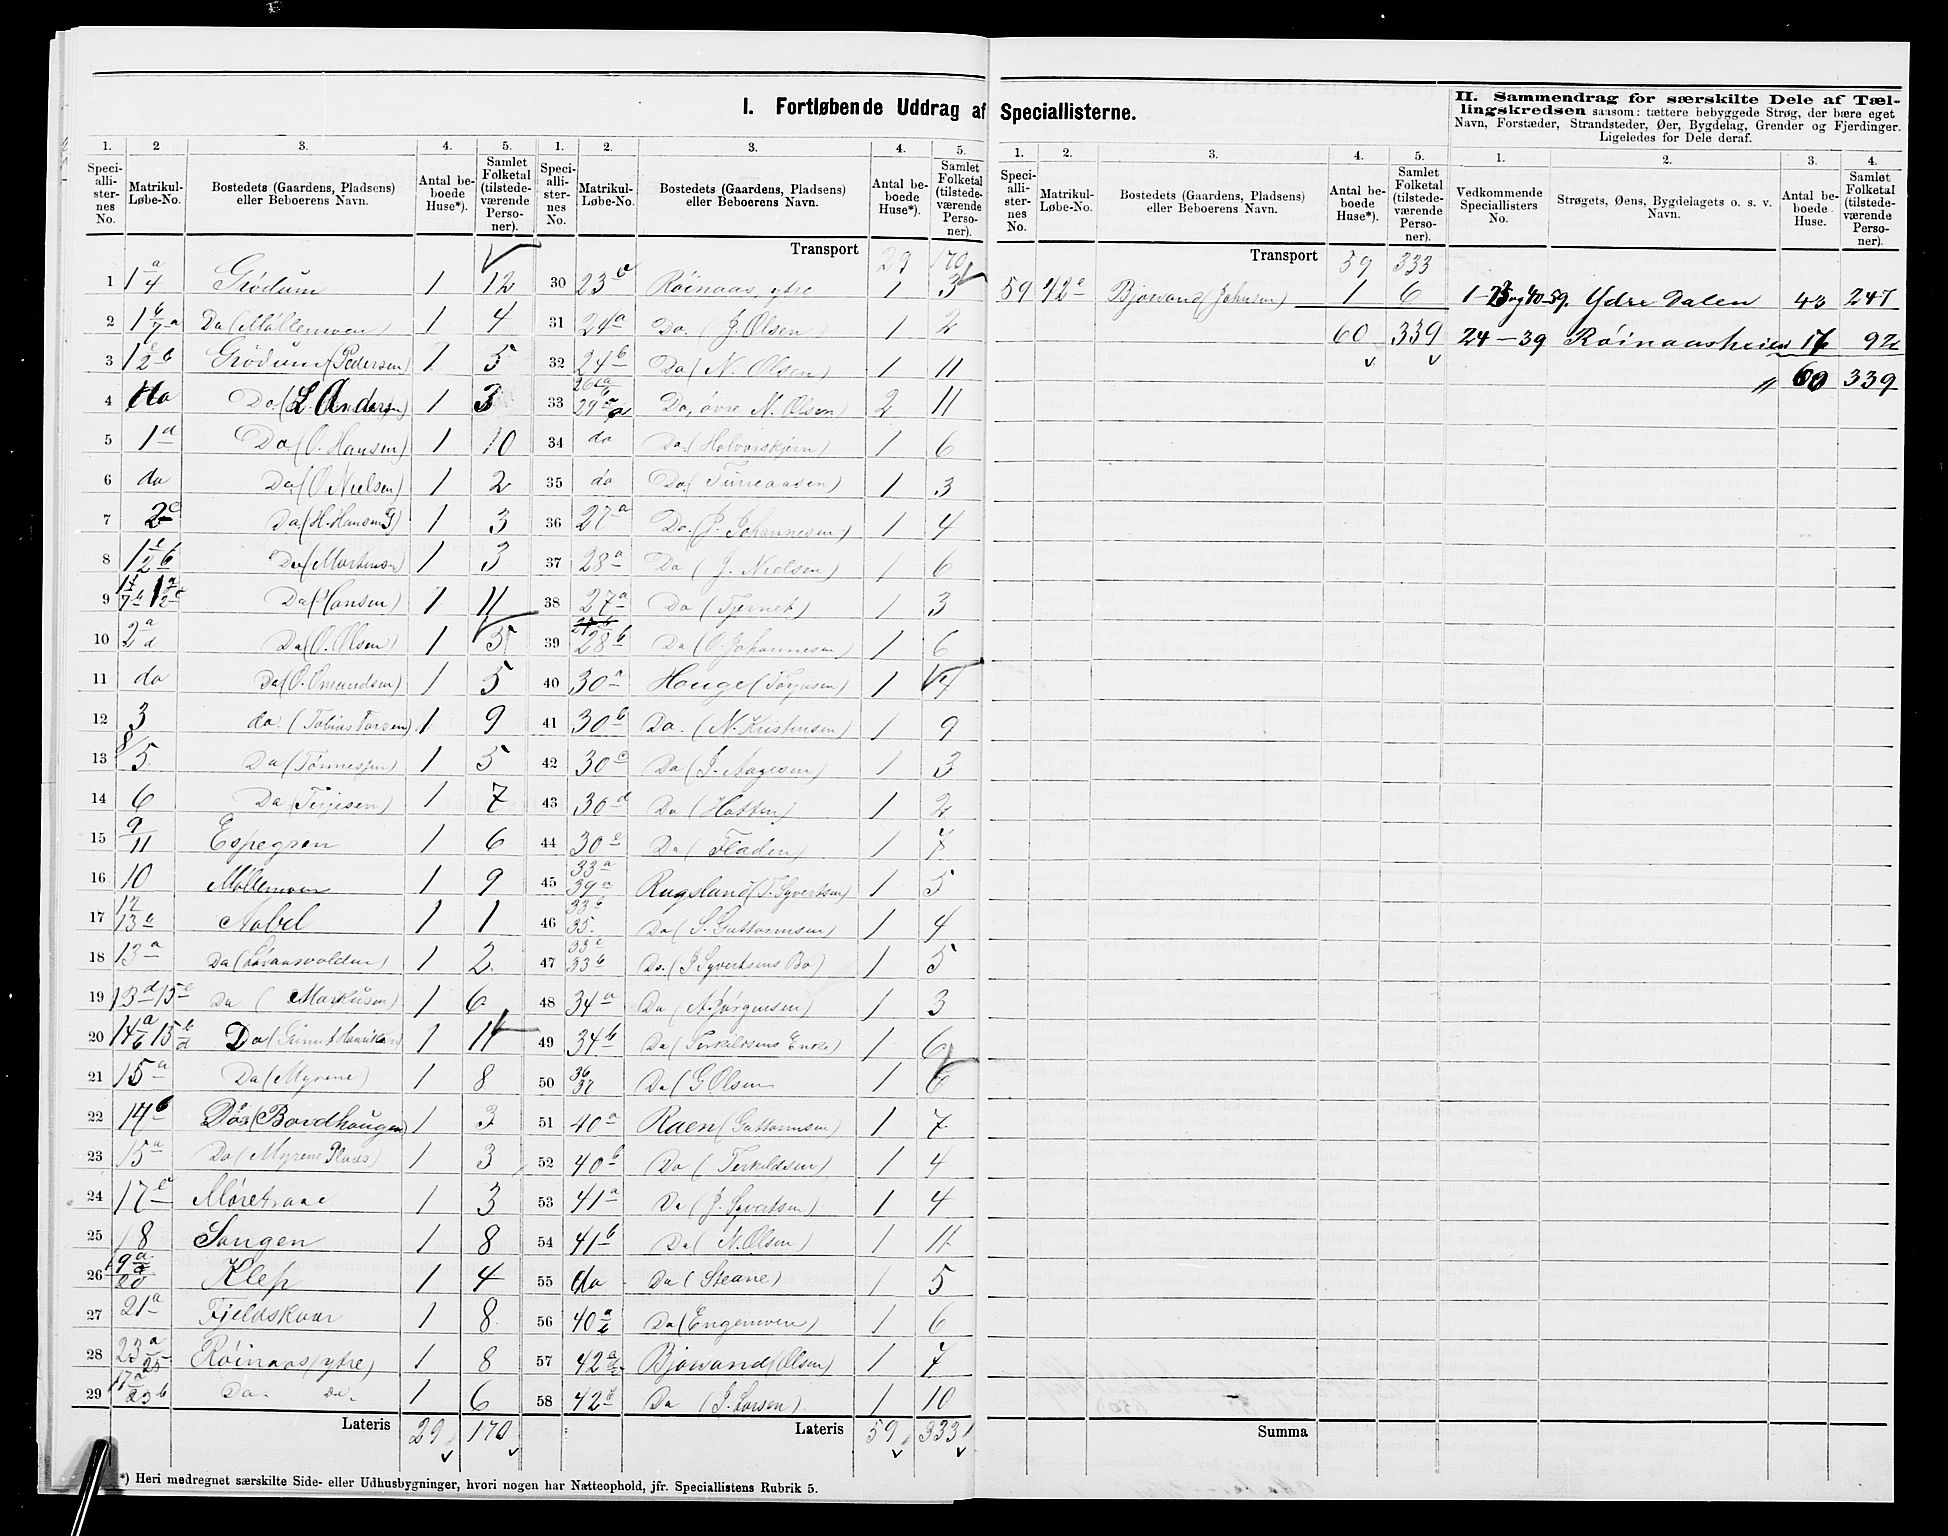 I. Fortløbende Uddrag af Speciallisterne.
II. Sammendrag for særskilte Dele af Tællingskredsen saasom: tættere bebyggede Strøg, der bære eget
Navn, Forstæder, Strandsteder, Øer, Bygdelag, Grender og Fjerdinger.
Ligeledes for Dele deraf.
1. 2 3. 4. 5. 1. 2. 3. 4. 5.
Speciallisternes No. Matrikul-Løbe-No. Bostedets (Gaardens, Pladsens) eller Beboerens Navn. Antal beboede Huse*). Samlet Folketal (tilstedeværende Personer).
Speciallisternes No. Matrikul-Løbe-No. Bostedets (Gaardens, Pladsens) eller Beboerens Navn. Antal beboede Huse*). Samlet Folketal (tilstedeværende Personer).
1 1 a/4 Grödum 1 12
2 Do (Möllemoen) 1 4
3 Grödum (Pedersen) 1 5
4 do Do. (L. Andersen) 1 3
5 1d Do. (O. Hansen) 1 10
6 do Do. (O Nielsen) 1 2
7 2c Do. (H. Hansen) 1 3
8 Do (Mortensen) 1 3
9 Do (Hansen) 1 11
10 2 a/d Do (O. Olsen) 1 3
11 do Do (O. Omundsen) 1 5
12 3 do. (Tobias Larsen) 1 9
13 5 Do (Tönnessen) 1 5
14 6 Do (Terjesen) 1 7
15 9/11 Espegren 1 6
16 10 Möllemoen 1 9
17 Nabel 1 1
18 13a Do 1 2
19 13d 15e Do (Markusen) 1 6
20 Do 1 11
21 15a Do (Myrene) 1 8
22 14b Do (Bordhaugen) 1 3
23 15a Do (Myrene Plads) 1 3
24 17 Möretraae 1 3
25 18 Sangen 1 8
26 Klep 1 4
27 21a Fjeldskaar 1 8
28 23a 25 Röinaas (ydre) 1 8
29 Do. Do. 1 6
Lateris 29 170
Transport 29 170
30 23 Röinaas, ydre 1 3
31 24a Do. (J. Olsen) 1 2
32 24b Do (N. Olsen) 1 11
33 Do, övre N. Olsen) 2 11
34 do Do. (Halvorskjern) 1 6
35 do Do. 1 3
36 27a Do. (J. Johannesen) 1 4
37 28a Do (J. Nielsen) 1 6
38 27a Do (Tjernet) 1 3
39 28b Do (O. Johannesen) 1 6
40 30a Hauge 1 4
41 30b Do. (N. Kristensen) 1 9
42 30c Do (J. Aagesen) 1 3
43 30d Do (Hatten) 1 2
44 30e Do (Fladen) 1 7
45 33a 39a Rugsland (T. Syvertsen) 1 5
46 33b 35. Do (S. Guttormsen) 1 4
47 33c 33b Do. (J Syvertsens Bo) 1 5
48 34a Do (A. Jörgensen) 1 3
49 34b Do (Terkildsens Enke) 1 6
50 36 37 Do (G Olsen 1 6
51 40a Raen (Guttormsen) 1 7
52 40b Do (Terkildsen) 1 4
53 41a Do (J. Syvertsen) 1 4
54 41b Do (N. Olsen) 1 11
55 do Do (Steane) 1 5
56 40 Do (Engemoen) 1 6
57 42 Bjovand (Olsen) 1 7
58 42 Do (J. Larsen). 1 10
Lateris 59 333
*) Heri medregnet særskilte Side- eller Udhusbygninger, hvori nogen har Natteophold, jfr. Speciallistens Rubrik 5.
1. 2. 3. 4. 5.
Speciallisternes No. Matrikul-Løbe-No. Bostedets (Gaardens, Pladsens) eller Beboerens Navn. Antal beboede Huse*). Samlet Folketal (tilstedeværende Personer).
Transport 59 333
59 42e Bjovand (Johnsen) 1 6
60 339
Summa
1. 2. 3. 4.
Vedkommende Speciallisters No. Strøgets, Øens, Bygdelagets o. s. v. Navn. Antal beboede Huse. Samlet Folketal (tilstedeværende Personer).
1-23 og 40-59. Ydre Dalen 43 247
24-39 Röinaasheien 17 92
" 60 339